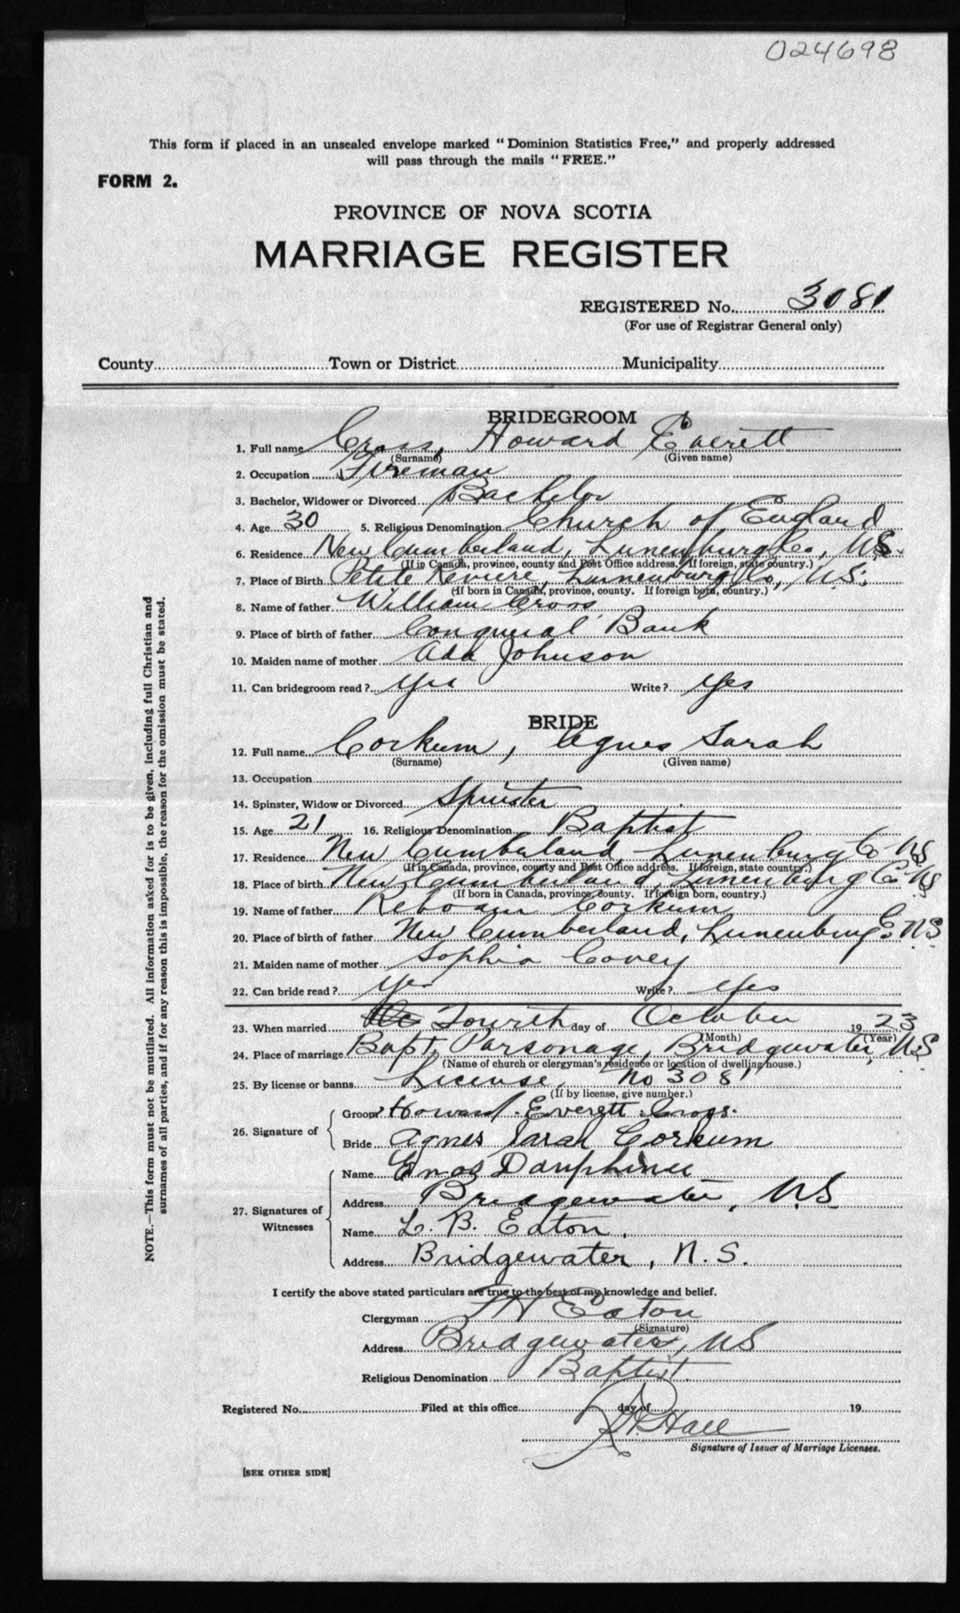 024698
This form if placed in an unsealed envelope marked "Dominion Statistics Free," and properly addressed
will pass through the mails "FREE."
FORM 2.
PROVINCE OF NOVA SCOTIA
MARRIAGE REGISTER
REGISTERED No. 3081
(For use of Registrar General only)
County Town or District Municipality
BRIDEGROOM
1. Full name Cross, Howard Everett
(Surname) (Given name)
2. Occupation Fireman
3. Bachelor, Widower or Divorced Bachelor
4. Age 30 5. Religious Denomination Church of England
6. Residence New Cumberland, Lunenburg Co, N.S.
(If in Canada, province, county and Post Office address. If foreign, state country.)
7. Place of Birth Petite Reviere, Lunenburg Co, N.S.
(If born in Canada, province, county. If foreign born, country.)
8. Name of father William Cross
9. Place of birth of father Conqueral Bank
10. Maiden name of mother Ada Johnson
11. Can bridegroom read? Yes Write? Yes
BRIDE
12. Full name Corkum, Agnes Sarah
(Surname) (Given name)
13. Occupation
14. Spinster, Widow or Divorced Spinster
15. Age 21 16. Religious Denomination Baptist
17. Residence New Cumberland, Lunenburg Co NS
(If in Canada, province, county and Post Office address. If foreign, state country.)
18. Place of birth New Cumberland, Lunenburg Co NS
(If born in Canada, province, county. If foreign born, country.)
19. Name of father Reboam Corkum
20. Place of birth of father New Cumberland, Lunenburg Co NS
21. Maiden name of mother Sophia Covey
22. Can bride read? Yes Write? Yes
23. When married Fourth day of October 19 23
(Month) (Year)
24. Place of marriage Bapt. Parsonage, Bridgewater, N.S
(Name of church or clergyman's residence or location of dwelling house.)
25. By license or banns License, No 3081
(If by license, give number.)
26. Signature of
Groom Howard Everett Cross.
Bride Agnes Sarah Corkum
27. Signatures of Witnesses
Name Enos Dauphinee
Address Bridgewater, N.S
Name L. B. Eaton.
Address Bridgewater, N.S.
I certify the above stated particulars are true to the best of my knowledge and belief.
Clergyman Eaton
(Signature)
Address Bridgewater, NS
Religious Denomination Baptist
Registered No. Filed at this office day of 19
Hall
Signature of Issuer of Marriage Licenses.
[SEE OTHER SIDE]
NOTE.—This form must not be mutilated. All information asked for is to be given, including full Christian and
surnames of all parties, and if for any reason this is impossible, the reason for the omission must be stated.